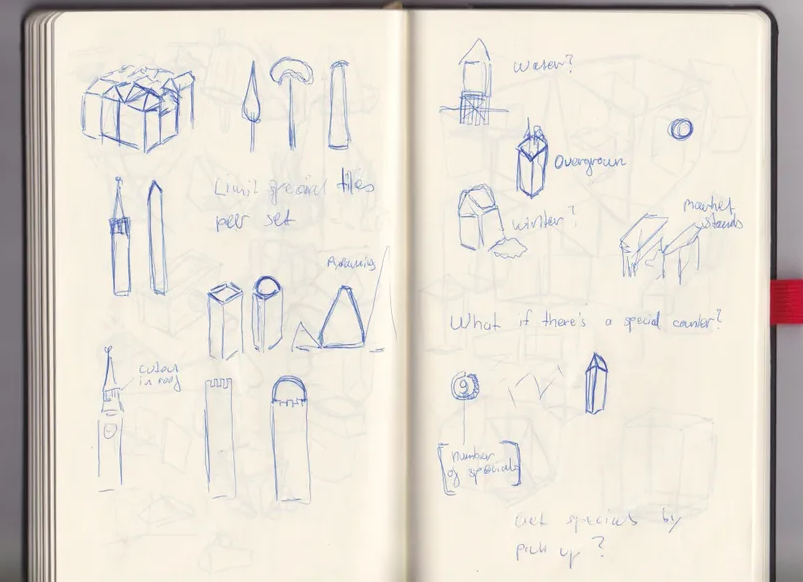 Limit special tiles
per set
Pyramids
colour
in roof
Water?
Overgrown
Winter?
Market
stands
What if there's a special counter?
9
[number
of specials]
Get specials by
pick up?